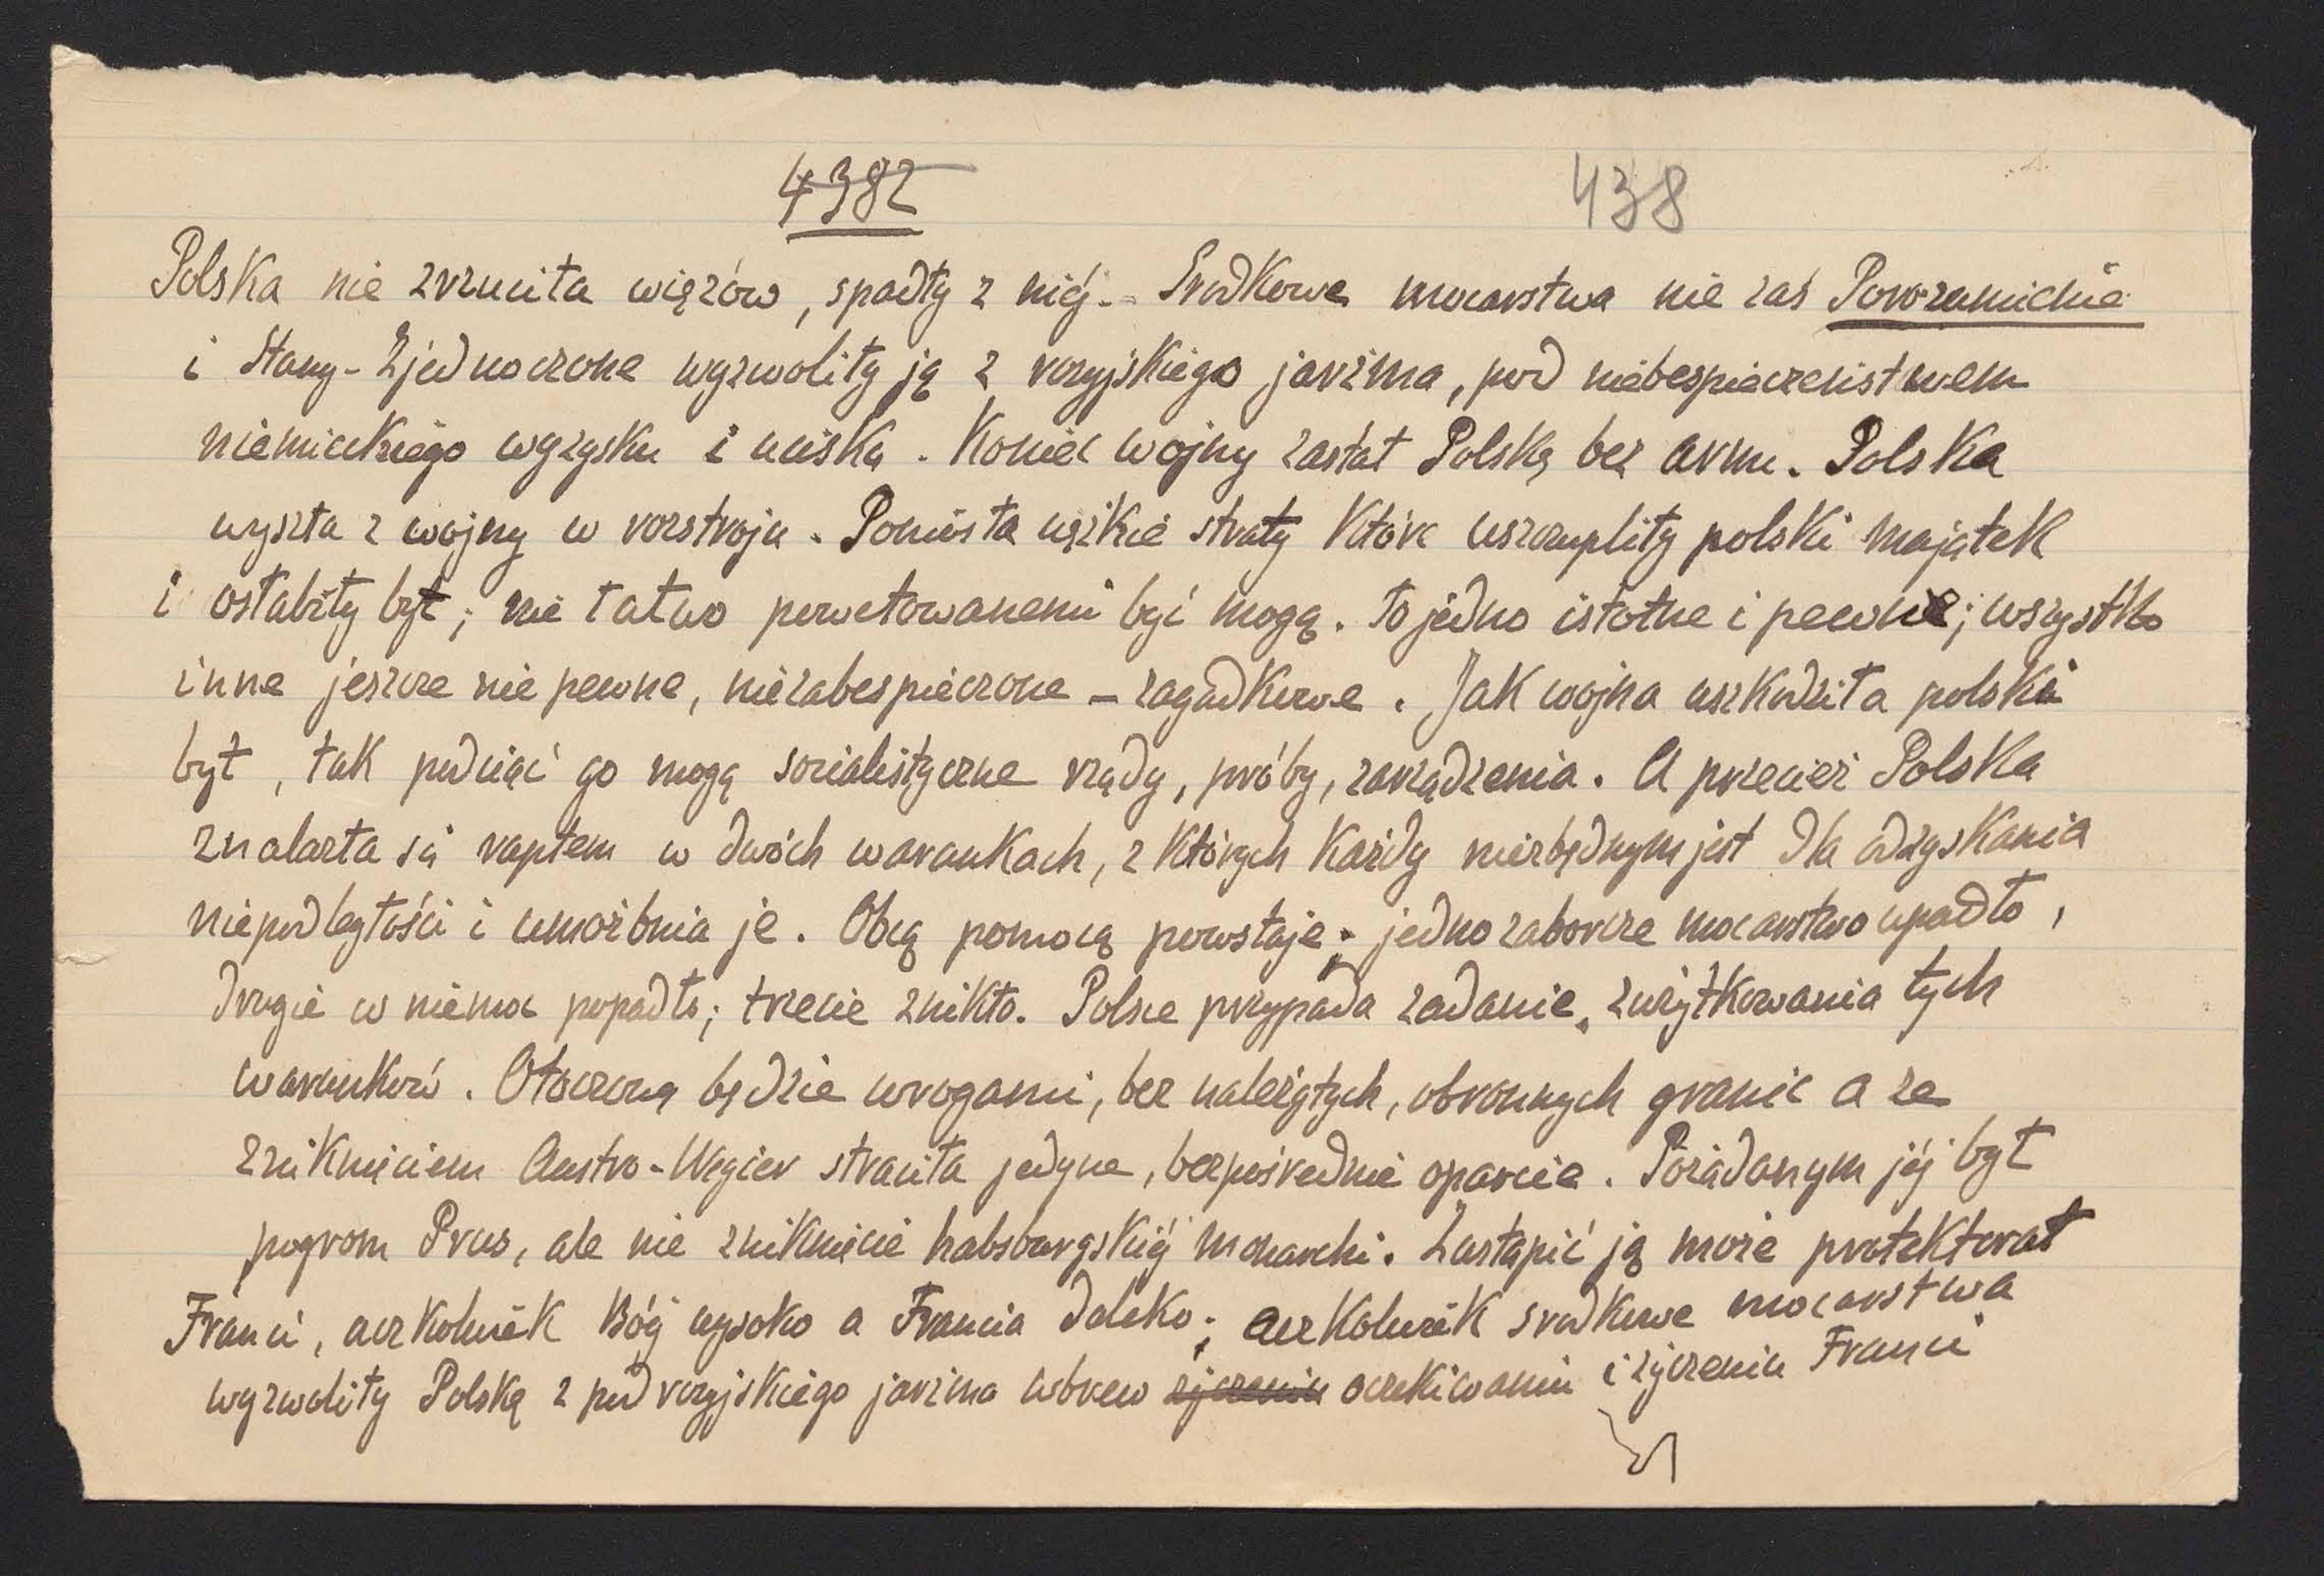 4382 438
Polska nie zrzuciła więzów, spadły z niéj. – Środkowe mocarstwa nie zaś Porozumienie
i Stany-Zjednoczone wyzwoliły ją z rosyjskiego jarzma, pod niebespieczeństwem
niemieckiego wyzysku i ucisku. Koniec wojny zastał Polskę bez armii. Polska
wyszła z wojny w rozstroju. Poniosła ciężkie straty które uszczupliły polski majątek
i osłabiły byt; nie łatwo powetowanemi być mogą. To jedno istotne i pewne; wszystko
inne jeszcze nie pewne, niezabespieczone – zagadkowe. Jak wojna uszkodziła polski
byt, tak podciąć go mogą socialistyczne rządy, próby, zarządzenia. A przecież Polska
znalazła się raptem w dwóch warunkach, z których każdy niezbędnym jest dla odzyskania
niepodległości i umożebnia je. Obcą pomocą powstaje; jedno zaborcze mocarstwo upadło,
drugie w niemoc popadło; trzecie znikło. Polsce przypada zadanie zużytkowania tych
warunków. Otoczoną będzie wrogami, bez należytych, obronnych granic a ze
zniknięciem Austro-Węgier straciła jedyne, bezpośrednie oparcie. Pożądanym jéj był
pogrom Prus, ale nie zniknięcie habsburgskiéj monarchi. Zastąpić ją może protektorat
Franci, aczkolwiek Bóg wysoko a Francia daleko; aczkolwiek środkowe mocarstwa
wyzwoliły Polskę z pod rosyjskiego jarzma wbrew życzeniu oczekiwaniu i życzeniu Franci